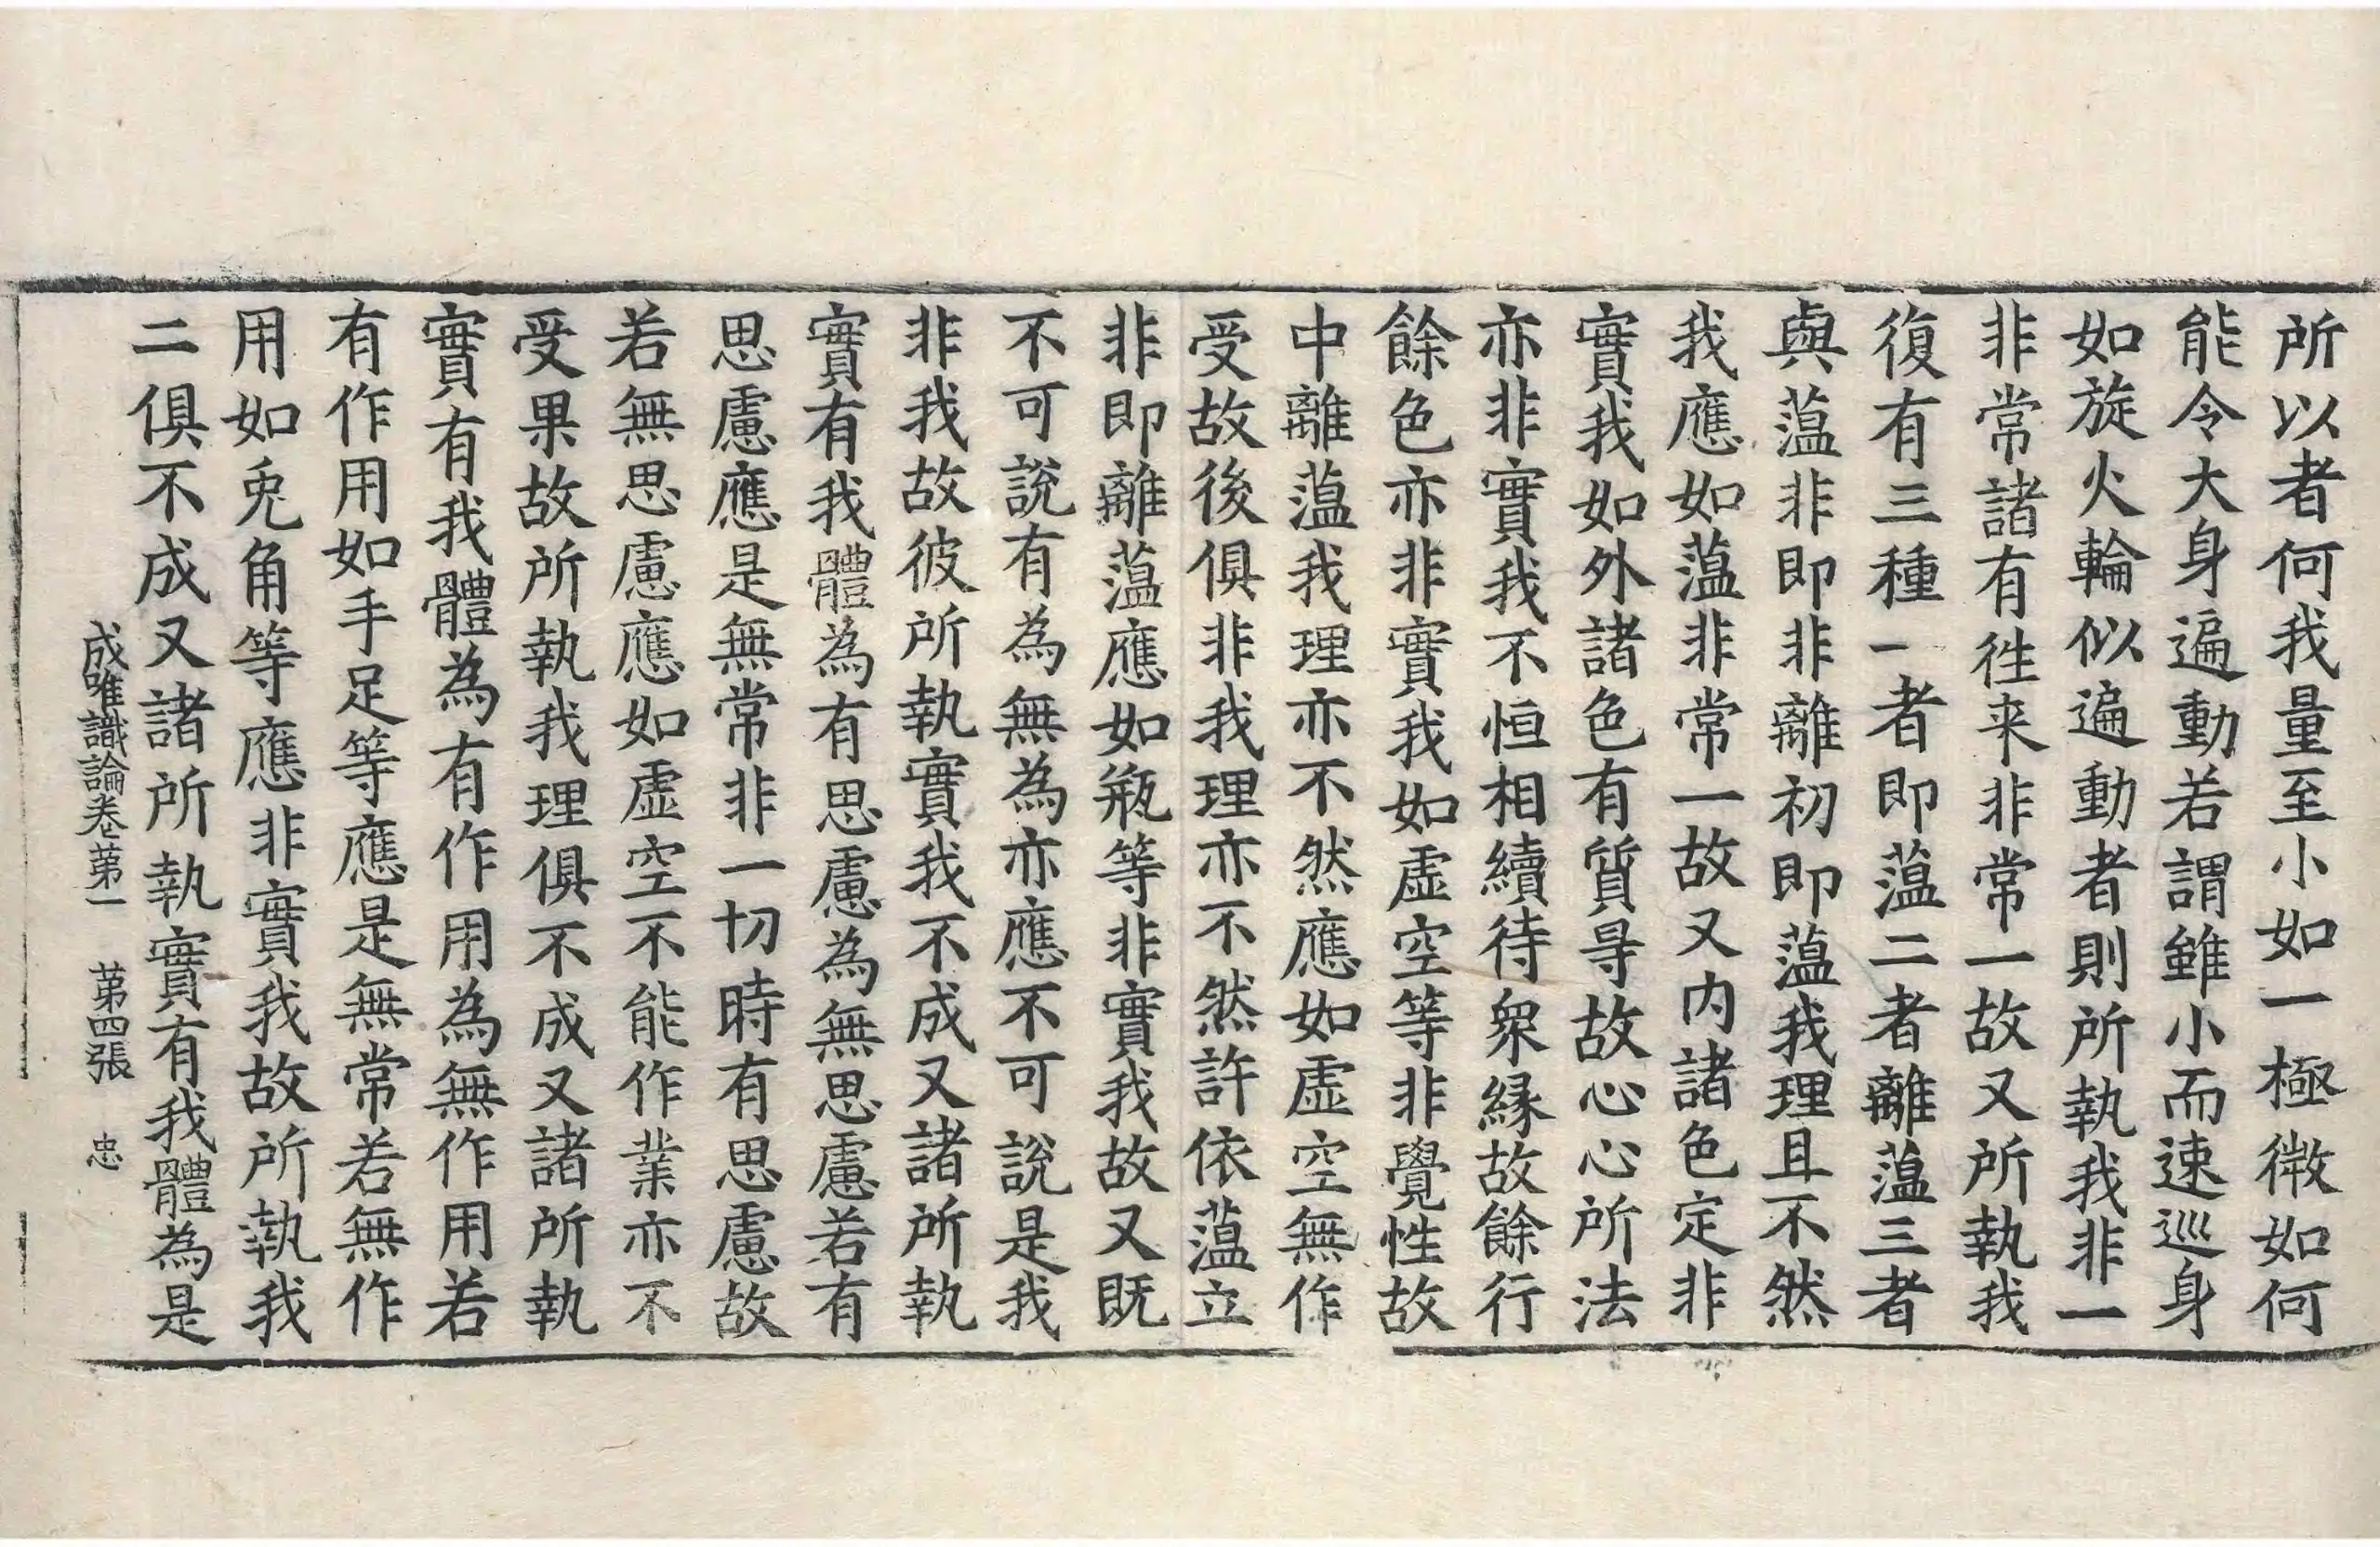 所以者何我量至小如一極微如何
能令大身遍動若謂雖小而速巡身
如旋火輪似遍動者則所執我非一
非常諸有徃来非常一故又所執我
復有三種一者即蕰二者離蕰三者
與蕰非即非離初即蕰我理且不然
我應如蕰非常一故又内諸色定非
實我如外諸色有質㝵故心心所法
亦非實我不恒相續待衆縁故餘行
餘色亦非實我如虛空等非覺性故
中離蕰我理亦不然應如虛空無作
受故後俱非我理亦不然許依蕰立
非即離蕰應如瓶等非實我故又既
不可說有為無為亦應不可說是我
非我故彼所執實我不成又諸所執
實有我體為有思慮為無思慮若有
思慮應是無常非一切時有思慮故
若無思慮應如虛空不能作業亦不
受果故所執我理俱不成又諸所執
實有我體為有作用為無作用若
有作用如手足等應是無常若無作
用如兎角等應非實我故所執我
二俱不成又諸所執實有我體為是
成唯識論卷苐一 苐四張 忠